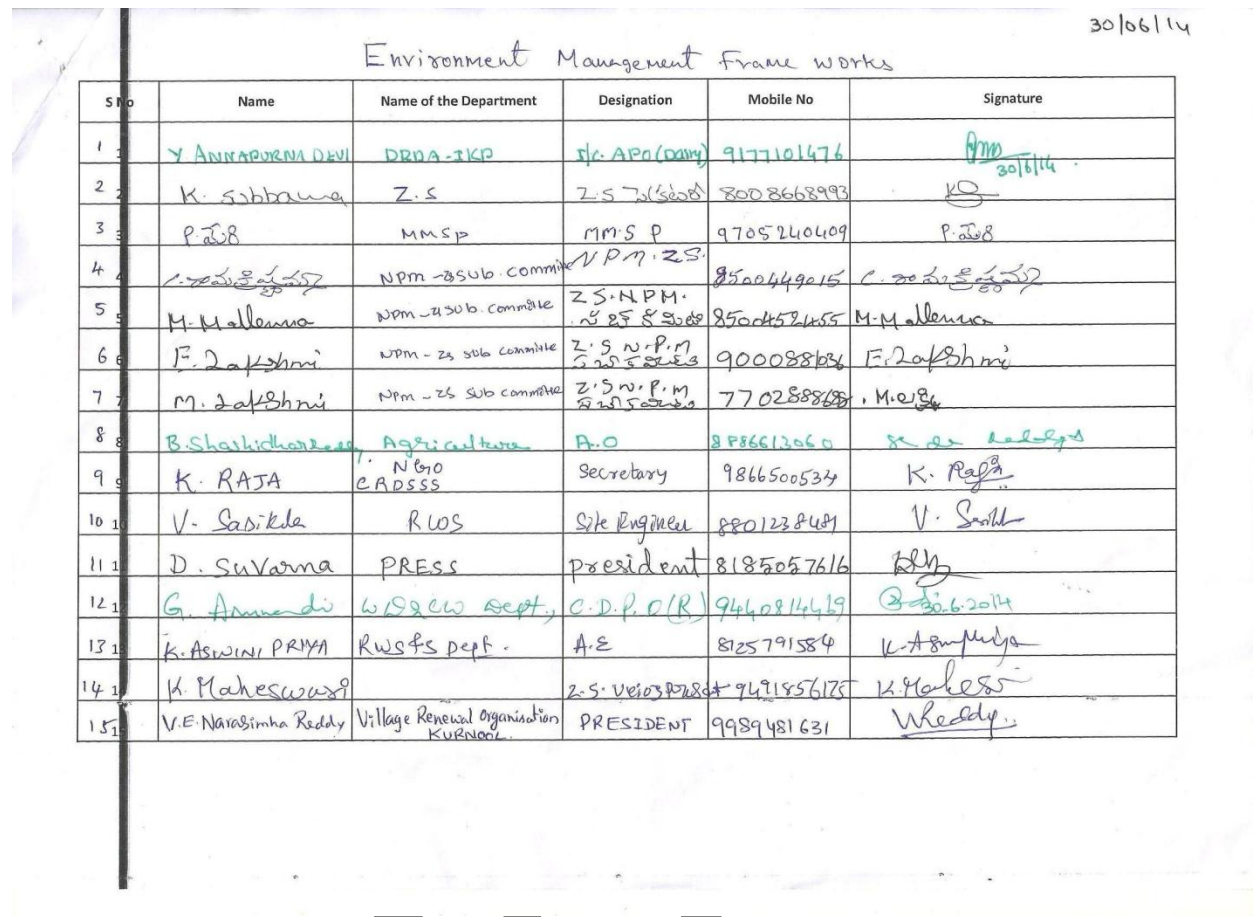 30/06/14
Environment Management Frame works
S No Name Name of the Department Designation Mobile No Signature
1 1 Y ANNAPURNA DEVI DRDA-IKP I/c. APO (Dairy) 9177101476
30/6/14
2 2 K. Subbamma Z.S Z.S 8008668993
3 3 P. MMSP MM.S P 9705240409 P.
4 4 NPM - ZSub. committe NPM. ZS. 8500449015
5 5 M. Mallenna NPM - ZSUb. committe Z S. NPM. M. Mallenna
6 6 E. Lakshmi NPM - Zs sub committe Z. S N. P. M E. Lakshmi
7 7 M. Lakshmi NPM - ZS Sub committe Z. S N. P. M M.
8 8 B. Shashidhar reddy Agriculture A.O 8886613060
9 9 K. RAJA NGO CRDSSS Secretary 9866500534 K. Raja
10 10 V. Sasikala RWS Site Engineer 8801238481 V.
11 1 D. Suvarna PRESS president 8185057616
12 1 G. W D & CW Dept., C.D.P.O(R) 30.6.2014
13 1 K. ASWINI PRIYA RWS &S Dept. A.E 8125791584 K. Aswinpriya
14 1 K. Maheswari Z.S. 9491856175 K. Mahes
15 1 V.E. Narasimha Reddy Village Renewal Organisation PRESIDENT 9989481631 VReddy
KURNOOL.